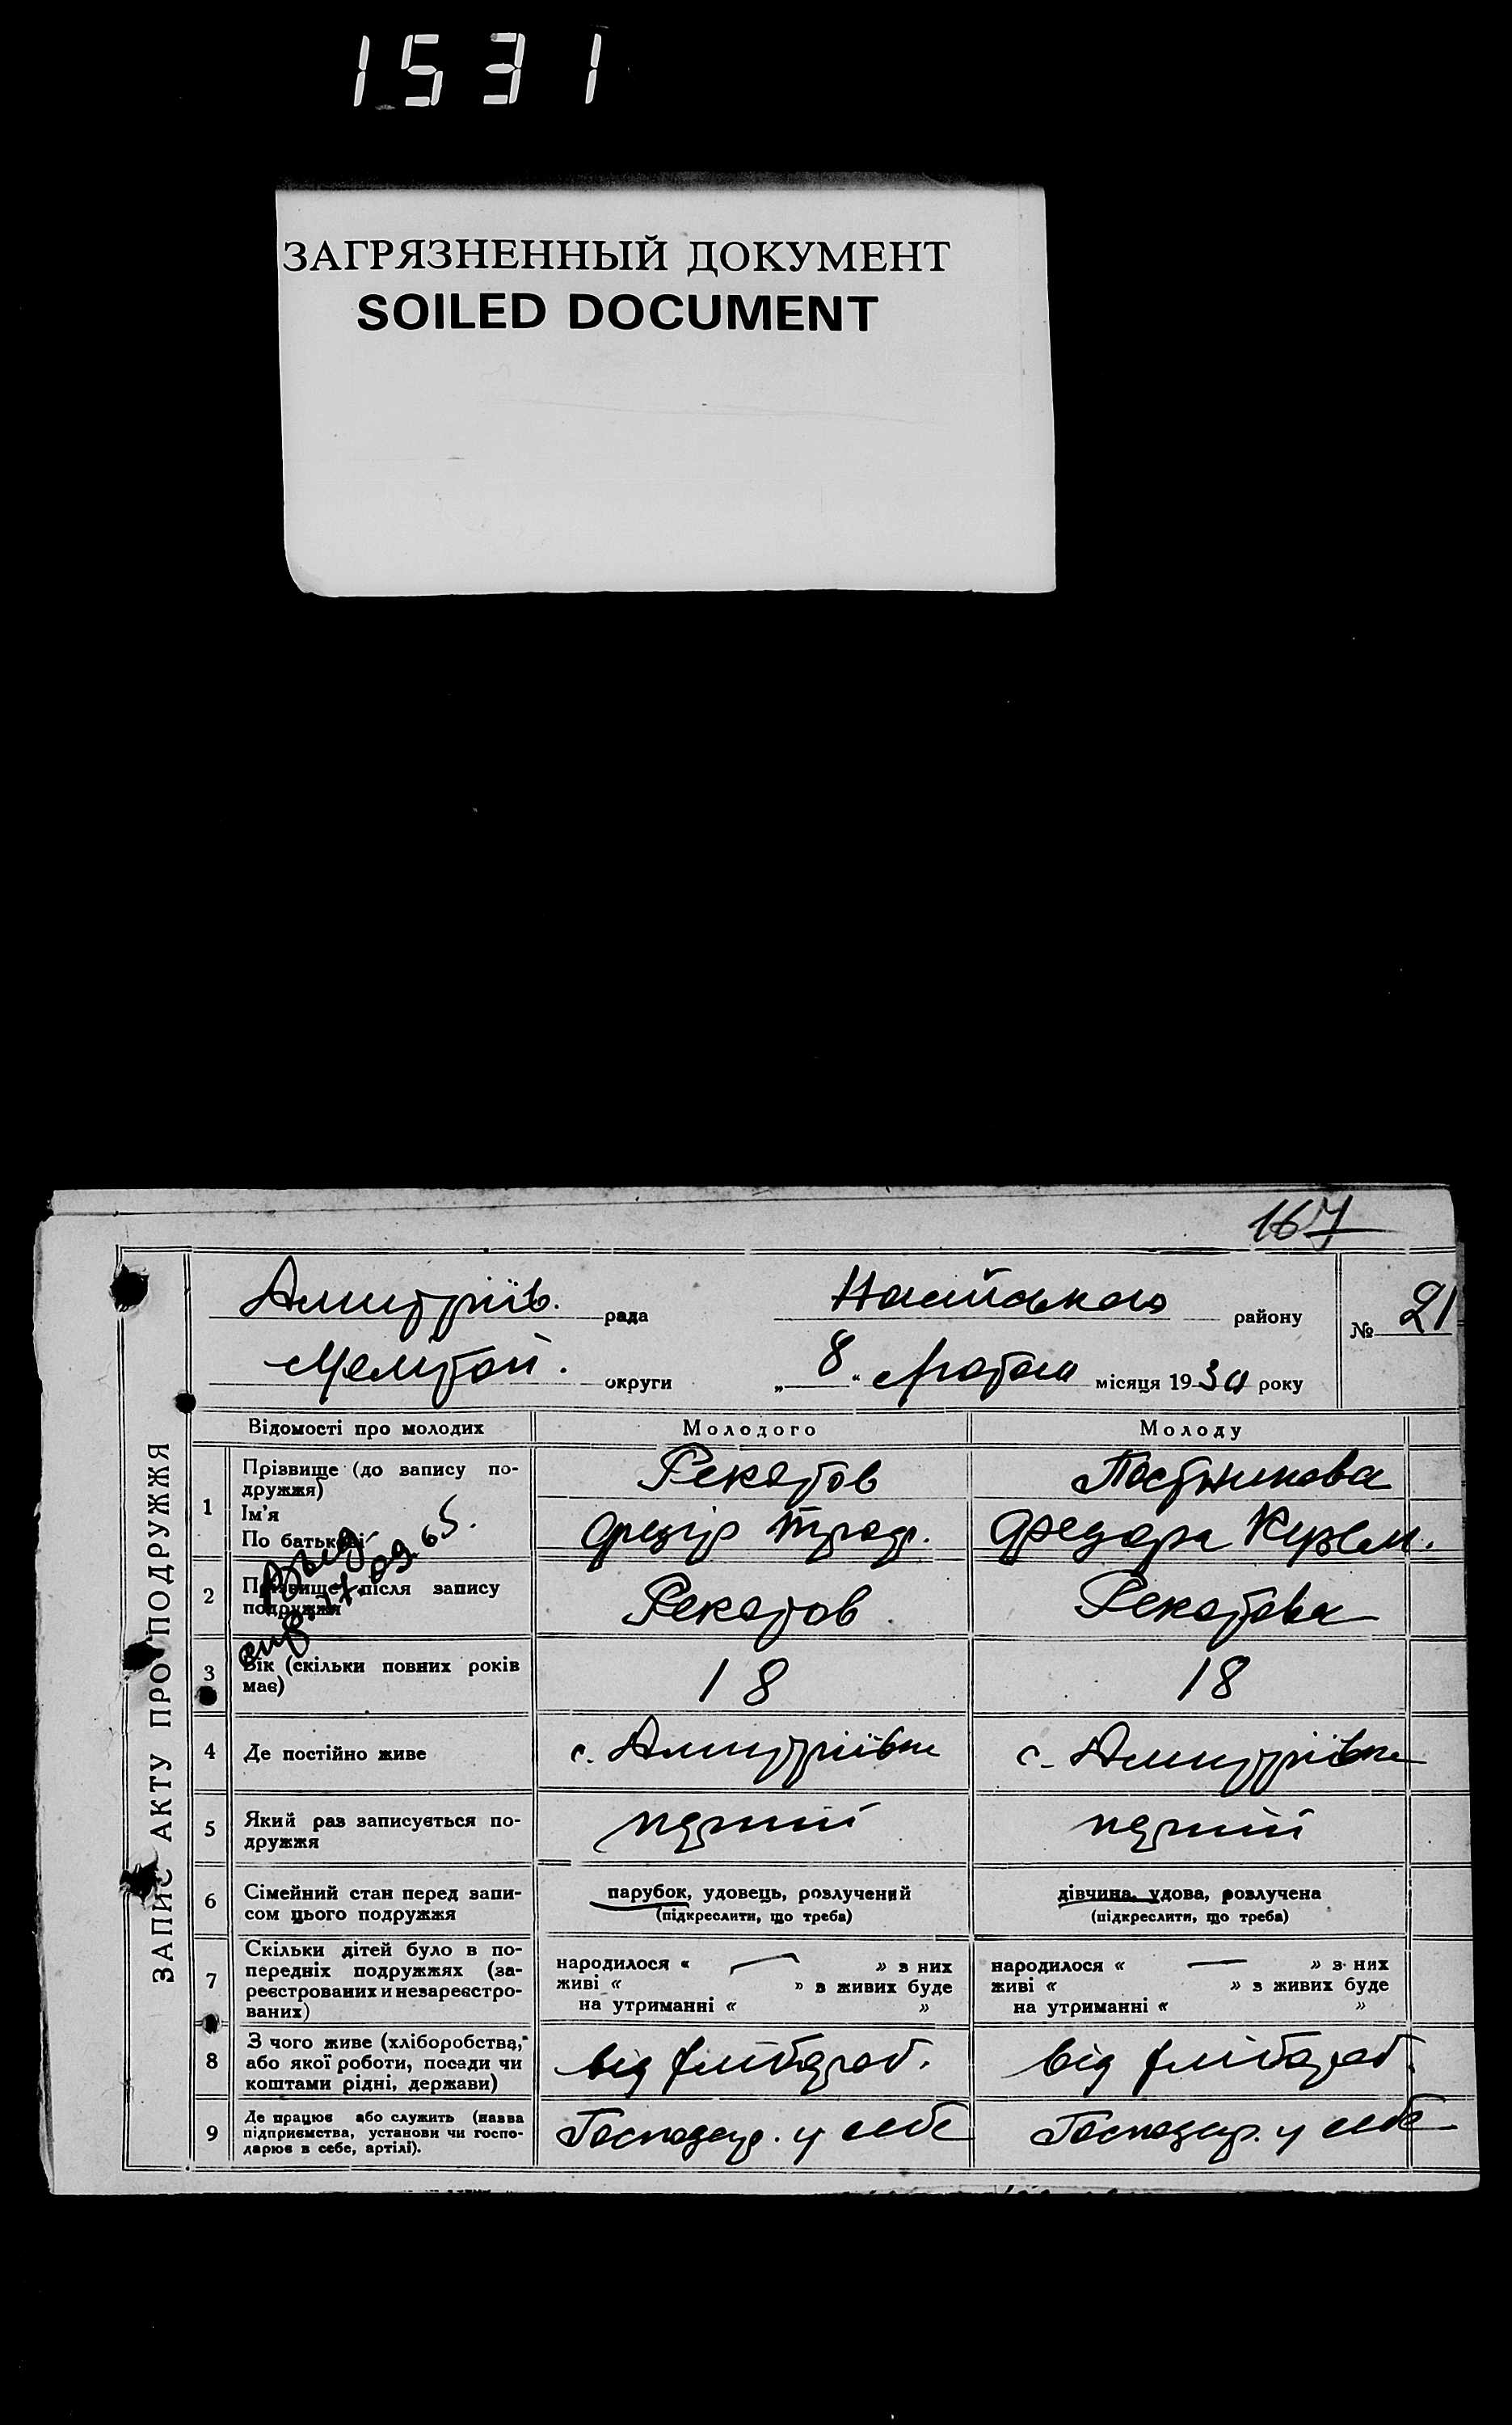 1531
ЗАГРЯЗНЕННЫЙ ДОКУМЕНТ
SOILED DOCUMENT
167
ЗАПИС АКТУ ПРО ПОДРУЖЖЯ
Дмитріїв. рада району № 21
Мелітоп. округи „8“ Лютого місяця 1930 року
Відомості про молодих Молодого Молоду
1 Прізвище (до запису по-
дружжя) Рекотов Постнікова
Ім'я
По батькові Федір Федора Кузьм.
09 65.
2 Прізвище після запису
подружжя Рекотов Рекотова
3 Вік (скільки повних років
має) 18 18
4 Де постійно живе с. Дмитріївка с. Дмитріївка
5 Який раз записується по-
дружжя перший перший
6 Сімейний стан перед запи-
сом цього подружжя
парубок, удовець, розлучений дівчина, удова, розлучена
(підкреслити, що треба) (підкреслити, що треба)
7 Скільки дітей було в по-
передніх подружжях (за-
реєстрованих и незареєстро-
ваних)
народилося « — » з них народилося « — » з них
живі « » в живих буде живі « » з живих буде
на утриманні « » на утриманні « »
8 З чого живе (хліборобства,
або якої роботи, посади чи
коштами рідні, держави) від хлібороб. від хлібороб.
9 Де працює або служить (назва
підприємства, установи чи госпо-
дарює в себе, артілі). Господар. у себе Господар. у себе